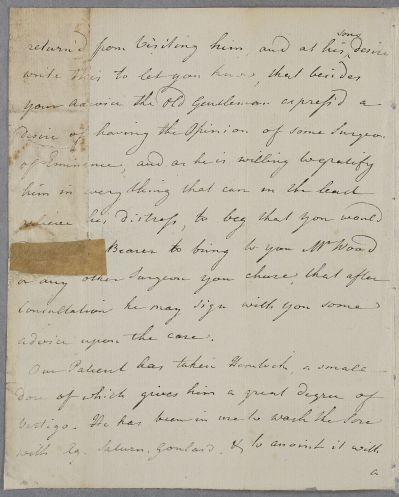 sons
return'd from Visiting him, and at his desire
write this to let you know, that besides
your advice the old Gentleman express'd a
desire of having the Opinion of some Surgeon
of Eminence, and as he is willing to gratify
him in every thing that can in the least
relieve his distress, to beg that you would
Bearer to bring to you Mr Wood
or any other Surgeon you chuse, that after
Consultation he may sign with you some
advice upon the case.
Our Patient has taken Hemlock, a small
dose of which gives him a great degree of
Vertigo. He has been in use to wash the Sore
with Aq. Saturn. Goulard. & to anoint it with
a